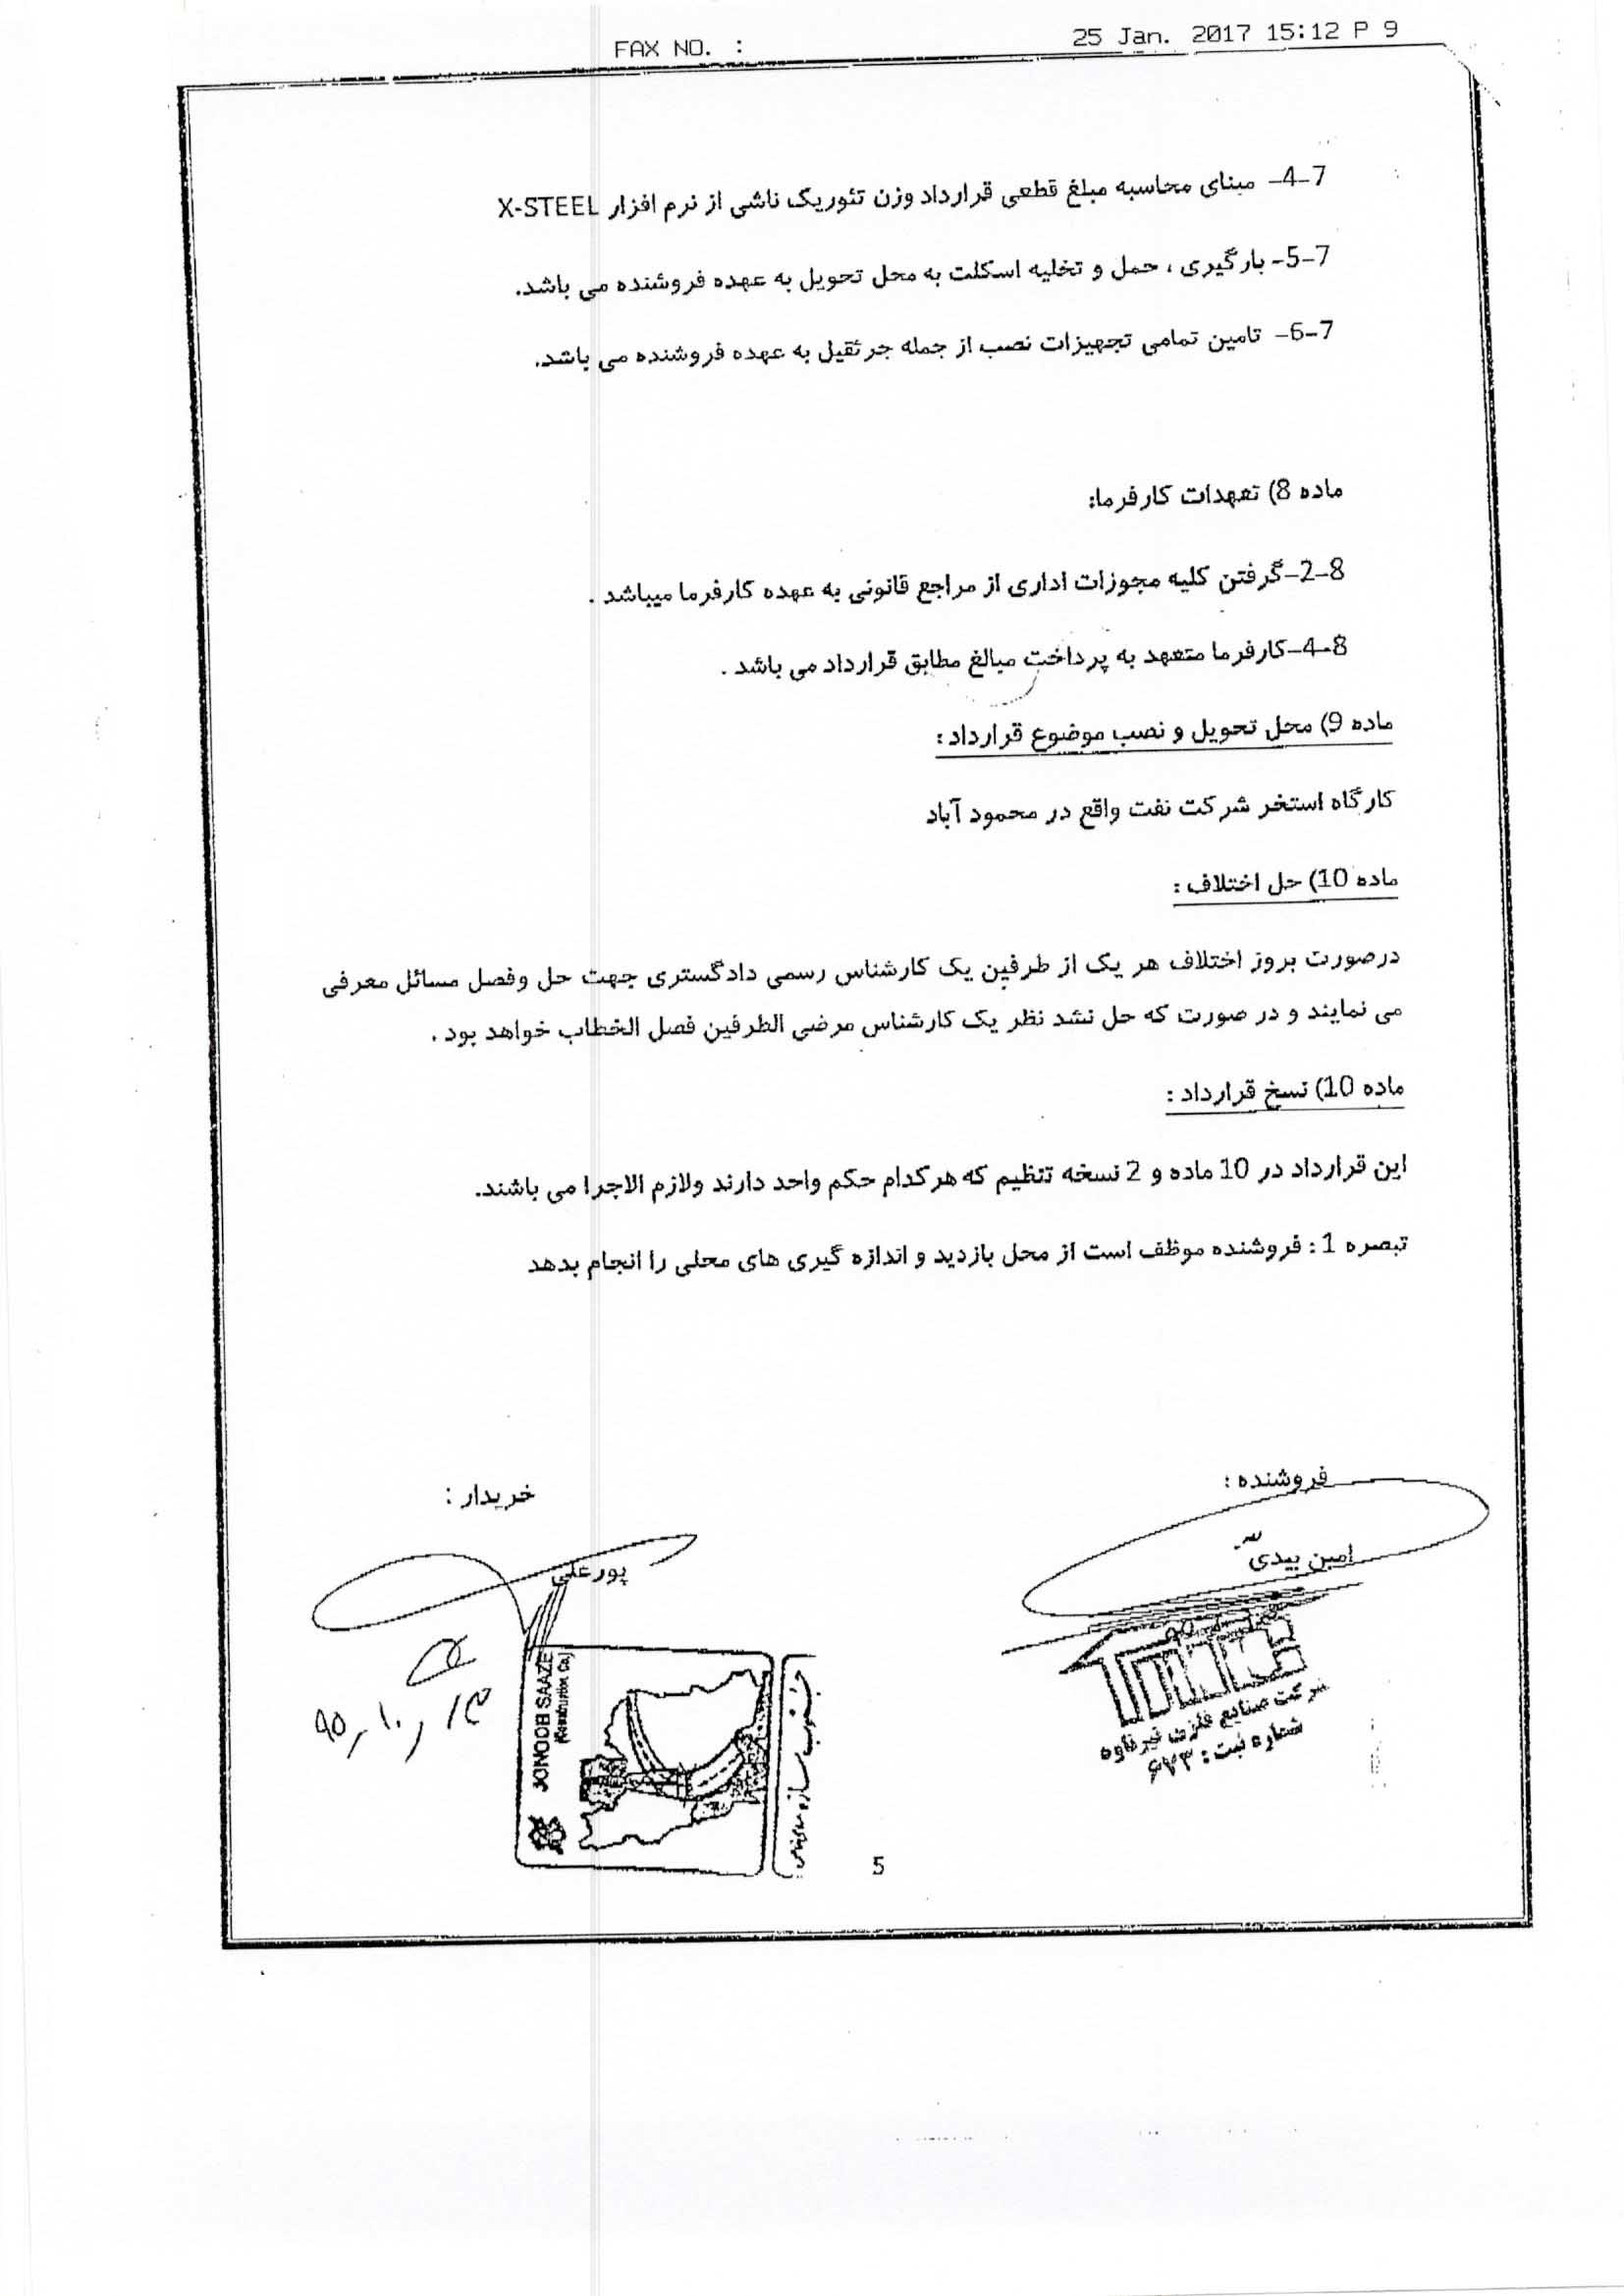 FAX NO. :
25 Jan. 2017 15:12 P 9
4-7- مبنای محاسبه مبلغ قطعی قرارداد وزن تئوریک ناشی از نرم افزار X-STEEL
5-7- بارگیری ، حمل و تخلیه اسکلت به محل تحویل به عهده فروشنده می باشد.
6-7- تامین تمامی تجهیزات نصب از جمله جرثقیل به عهده فروشنده می باشد.
ماده 8) تعهدات کارفرما:
2-8-گرفتن کلیه مجوزات اداری از مراجع قانونی به عهده کارفرما میباشد .
4-8-کارفرما متعهد به پرداخت مبالغ مطابق قرارداد می باشد .
ماده 9) محل تحویل و نصب موضوع قرارداد :
کارگاه استخر شرکت نفت واقع در محمود آباد
ماده 10) حل اختلاف :
درصورت بروز اختلاف هر یک از طرفین یک کارشناس رسمی دادگستری جهت حل وفصل مسائل معرفی
می نمایند و در صورت که حل نشد نظر یک کارشناس مرضی الطرفین فصل الخطاب خواهد بود .
ماده 10) نسخ قرارداد :
این قرارداد در 10 ماده و 2 نسخه تنظیم که هرکدام حکم واحد دارند ولازم الاجرا می باشند.
تبصره 1 : فروشنده موظف است از محل بازدید و اندازه گیری های محلی را انجام بدهد
فروشنده :
خریدار :
امین بیدی
پورعلی
۹۵,۱۰,۱۳
JONOOB SAAZE
(Construction Co.)
جنوب سازه
شرکت صنایع فلزی
شماره ثبت : ۶۷۳
5